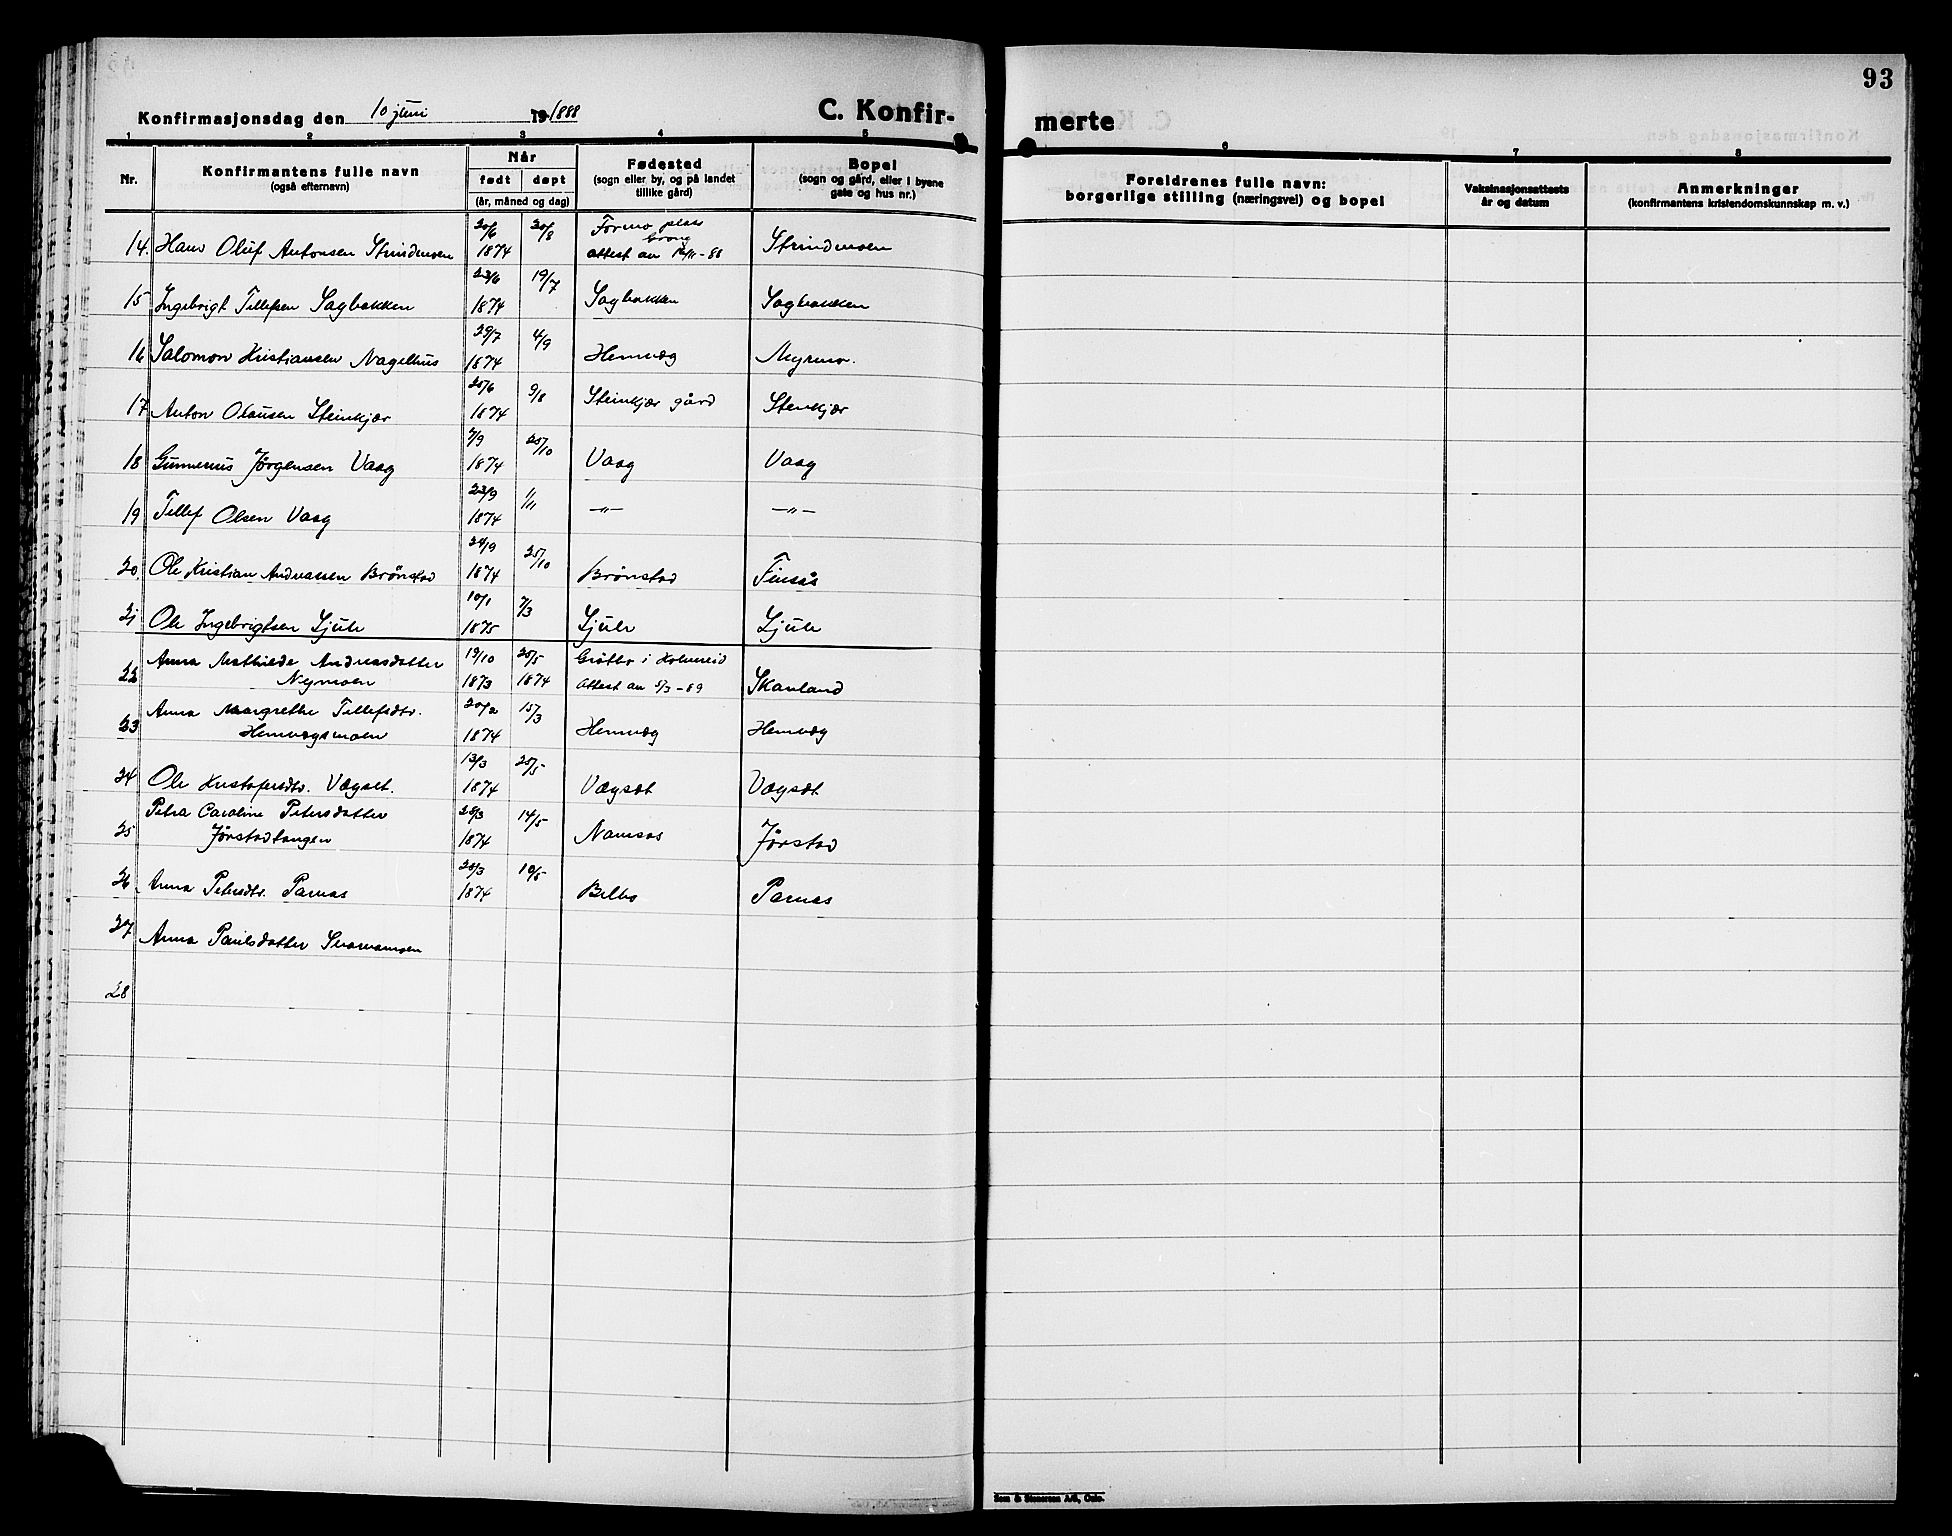 93
Konfirmasjonsdag den 10 juni 19 1888
C. Konfir-
merte
1 2 3 4 5 6 7 8
Nr.
Konfirmantens fulle navn
(også efternavn)
Når
født døpt
(år, måned og dag)
Fødested
(sogn eller by, og på landet
tillike gård)
Bopel
(sogn og gård, eller i byene
gate og hus nr.)
Foreldrenes fulle navn:
borgerlige stilling (næringsvei) og bopel
Vaksinasjonsattests
år og datum
Anmerkninger
(konfirmantens kristendomskunnskap m. v.)
20/6 20/8 Formo plass
Grong
14. Hans Oluf Antonsen Strindmoen 1874 attest av 12/11-88 Strindmoen
23/6 19/7
15 Ingebrigt Tellefsen Sagbakken 1874 Sagbakken Sagbakken
29/7 4/9
16 Salomon Kristiansen Nagelhus 1874 Hemvæg Myrmo.
25/6 9/8
17 Anton Olausen Steinkjær 1874 Steinkjær gård Stenkjær
7/9 25/10
18 Gunnerius Jørgensen Vaag 1874 Vaag Vaag
23/9 1/11
19 Tellef Olsen Vaag 1874 —"— —"—
24/9 25/10
20 Ole Kristian Andreassen Brønstad 1874 Brønstad Finsås
10/1 7/3
21 Ole Ingebrigtsen Ljule 1875 Ljule Ljule
Anna Mathilde Andreasdatter 19/10 25/5 i Kolvereid
22 Nymoen 1873 1874 Attest av 5/3-89 Skavland
Anna Margrethe Tellefsdtr. 20/2 15/3
23 Hemvægsmoen 1874 Hemvæg Hemvæg
13/3 25/5
24 Ole Kristofersdtr. Vægset. 1874 Vægsæt Vægsæt
Petra Caroline Petersdatter 28/3 14/5
25 Jørstadtangen 1874 Namsos Jørstad
28/3 10/5
26 Anna Petersdtr. Parnas 1874 Belbo Parnas
27 Anna Paulsdatter Snaasamoen
28
Sem & Stenersen A/S, Oslo.